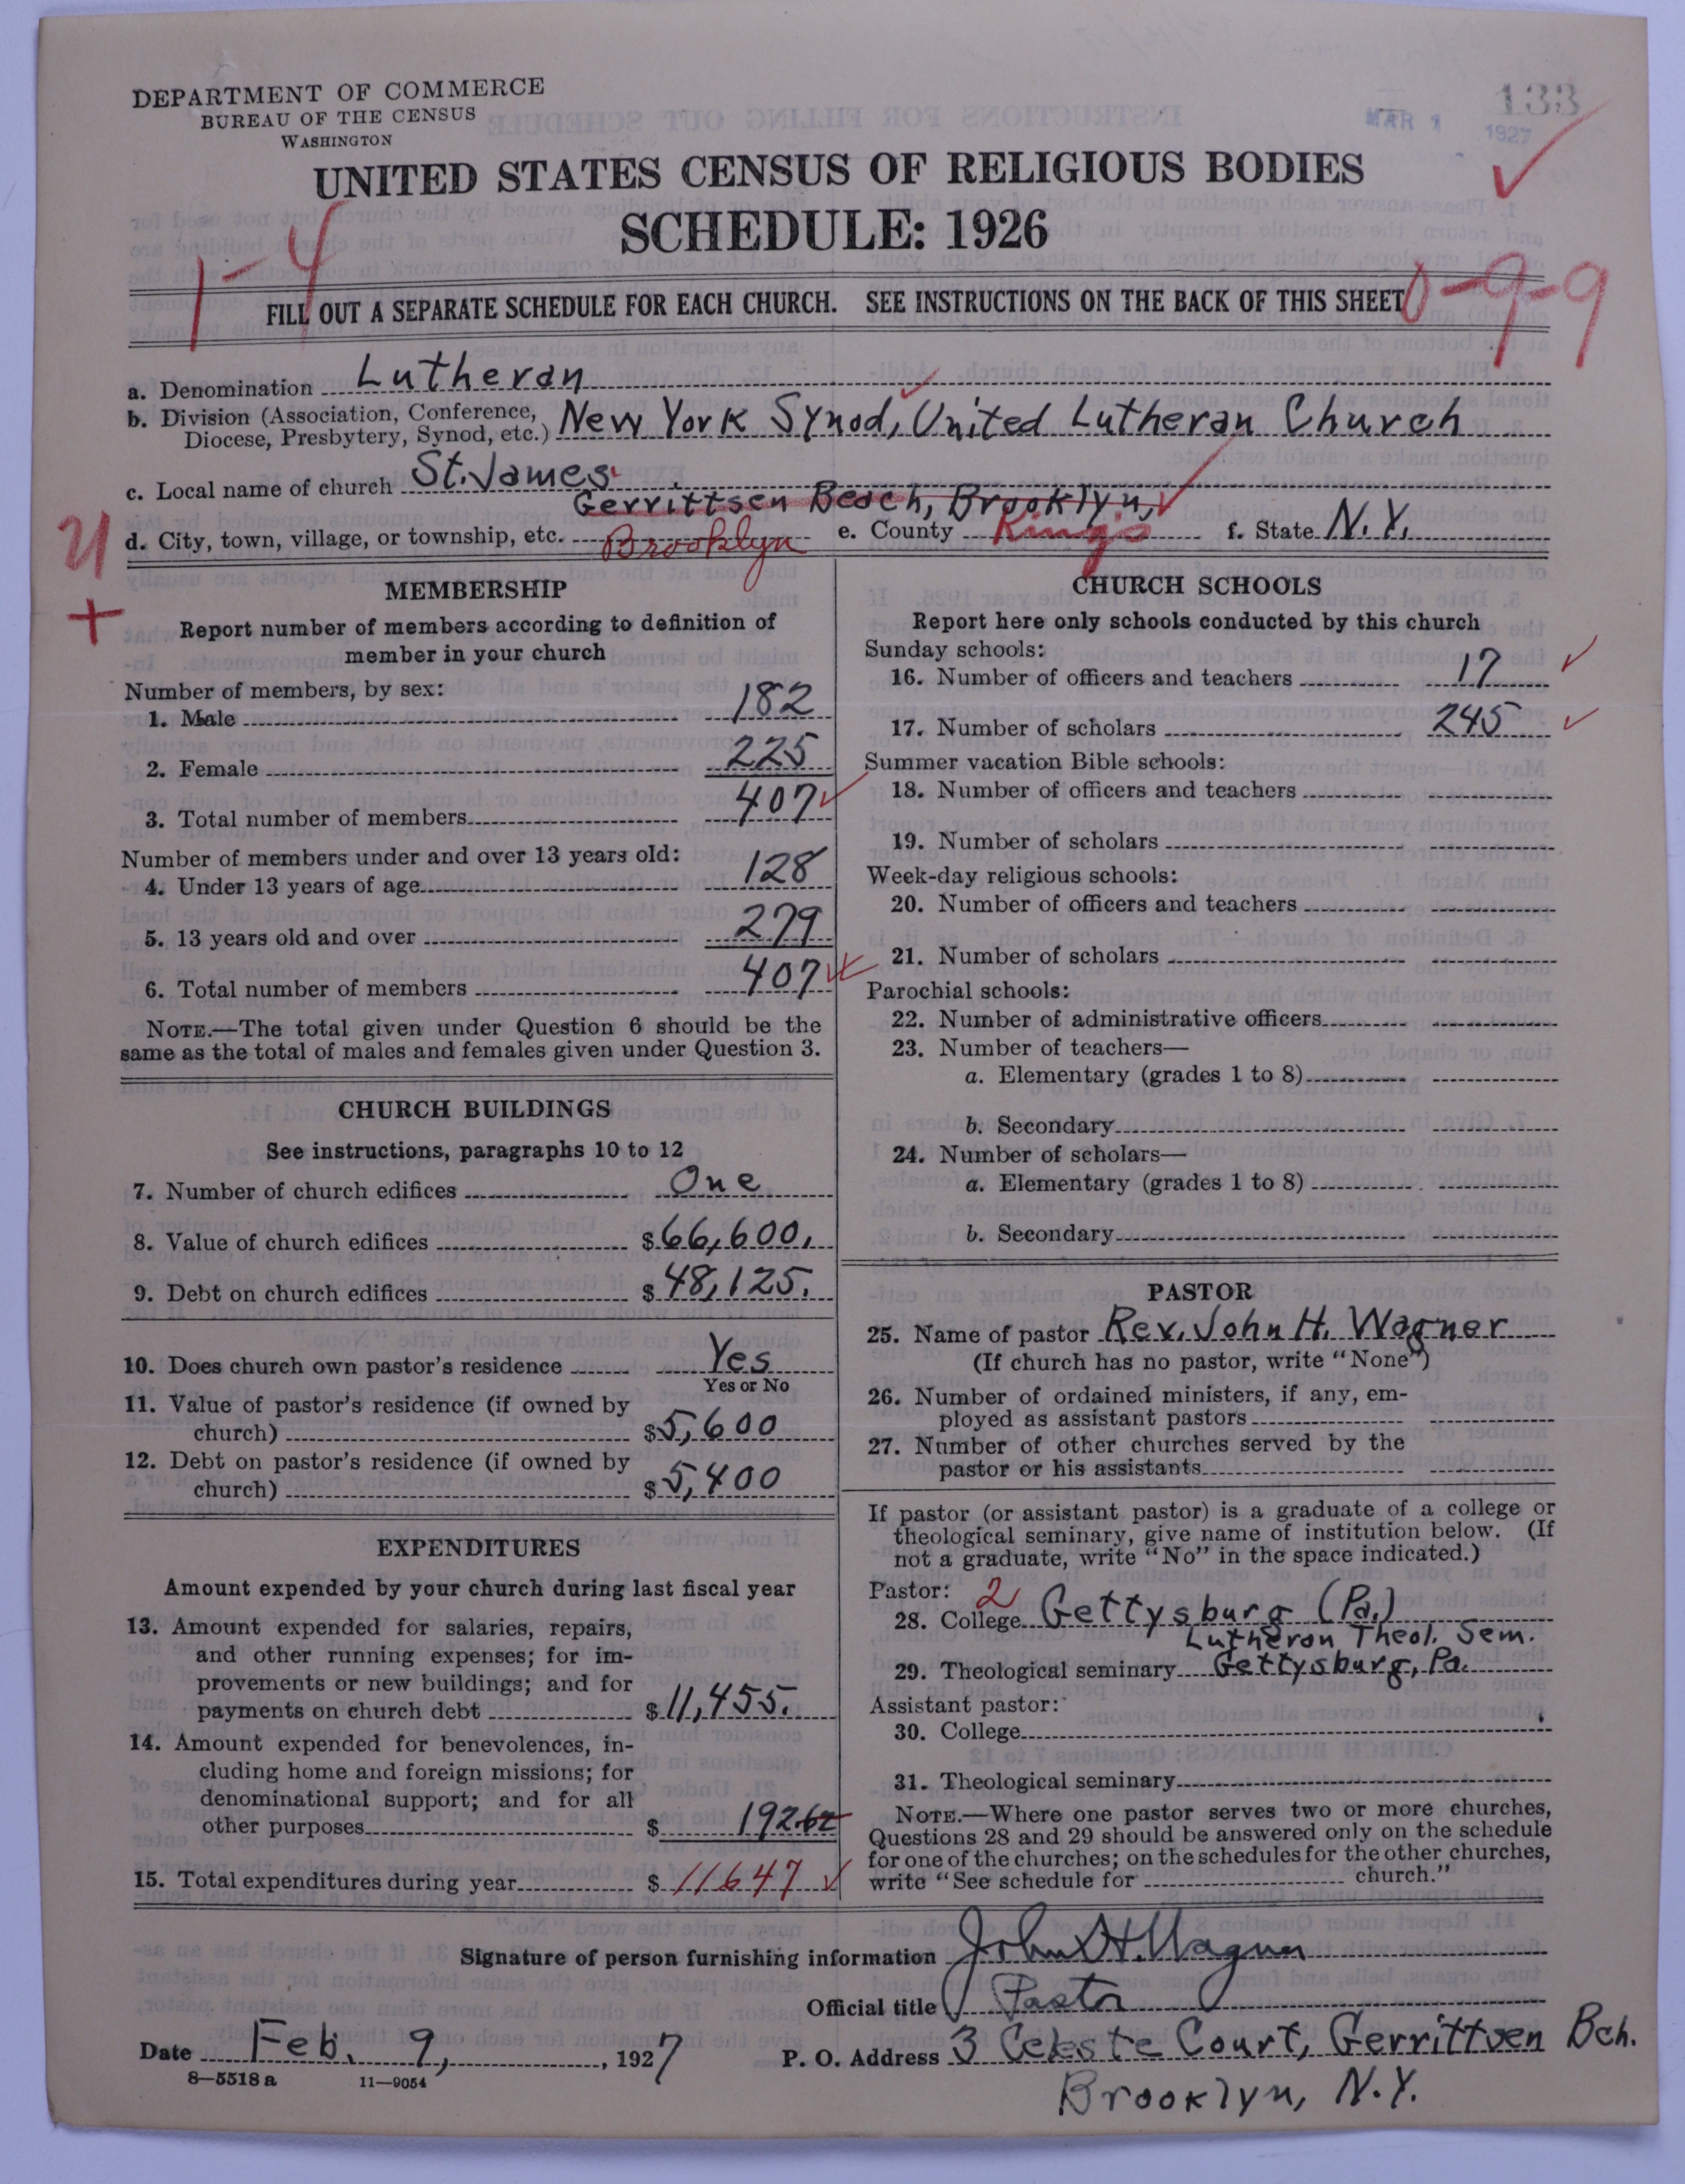 DEPARTMENT OF COMMERCE
BUREAU OF THE CENSUS
WASHINGTON
133
MAR 1 1927
UNITED STATES CENSUS OF RELIGIOUS BODIES
SCHEDULE: 1926
1-4
FILL OUT A SEPARATE SCHEDULE FOR EACH CHURCH. SEE INSTRUCTIONS ON THE BACK OF THIS SHEET
0-9-9
a. Denomination Lutheran
b. Division (Association, Conference, Diocese, Presbytery, Synod, etc.) New York Synod, United Lutheran Church
c. Local name of church St. James
Gerrittsen Beach, Brooklyn,
d. City, town, village, or township, etc. Brooklyn e. County Kings f. State N.Y.
MEMBERSHIP
Report number of members according to definition of
member in your church
Number of members, by sex:
1. Male 182
2. Female 225
3. Total number of members 407
Number of members under and over 13 years old:
4. Under 13 years of age 128
5. 13 years old and over 279
6. Total number of members 407
NOTE.—The total given under Question 6 should be the
same as the total of males and females given under Question 3.
CHURCH BUILDINGS
See instructions, paragraphs 10 to 12
7. Number of church edifices One
8. Value of church edifices $66,600.
9. Debt on church edifices $48,125.
10. Does church own pastor's residence Yes
Yes or No
11. Value of pastor's residence (if owned by
church) $5,600
12. Debt on pastor's residence (if owned by
church) $5,400
EXPENDITURES
Amount expended by your church during last fiscal year
13. Amount expended for salaries, repairs,
and other running expenses; for im-
provements or new buildings; and for
payments on church debt $11,455.
14. Amount expended for benevolences, in-
cluding home and foreign missions; for
denominational support; and for all
other purposes $ 192.62
15. Total expenditures during year $11647
CHURCH SCHOOLS
Report here only schools conducted by this church
Sunday schools:
16. Number of officers and teachers 17
17. Number of scholars 245
Summer vacation Bible schools:
18. Number of officers and teachers
19. Number of scholars
Week-day religious schools:
20. Number of officers and teachers
21. Number of scholars
Parochial schools:
22. Number of administrative officers
23. Number of teachers—
a. Elementary (grades 1 to 8)
b. Secondary
24. Number of scholars—
a. Elementary (grades 1 to 8)
b. Secondary
PASTOR
25. Name of pastor Rev. John H. Wagner
(If church has no pastor, write "None")
26. Number of ordained ministers, if any, em-
ployed as assistant pastors
27. Number of other churches served by the
pastor or his assistants
If pastor (or assistant pastor) is a graduate of a college or
theological seminary, give name of institution below. (If
not a graduate, write "No" in the space indicated.)
Pastor: 2
28. College Gettysburg (Pa.)
Lutheran Theol. Sem.
29. Theological seminary Gettysburg, Pa.
Assistant pastor:
30. College
31. Theological seminary
NOTE.—Where one pastor serves two or more churches,
Questions 28 and 29 should be answered only on the schedule
for one of the churches; on the schedules for the other churches,
write "See schedule for church."
Signature of person furnishing information John H. Wagner
Official title Pastor
Date Feb. 9, 1927 P. O. Address 3 Celeste Court, Gerrittsen Bch.
Brooklyn, N.Y.
8—5518 a 11—9054